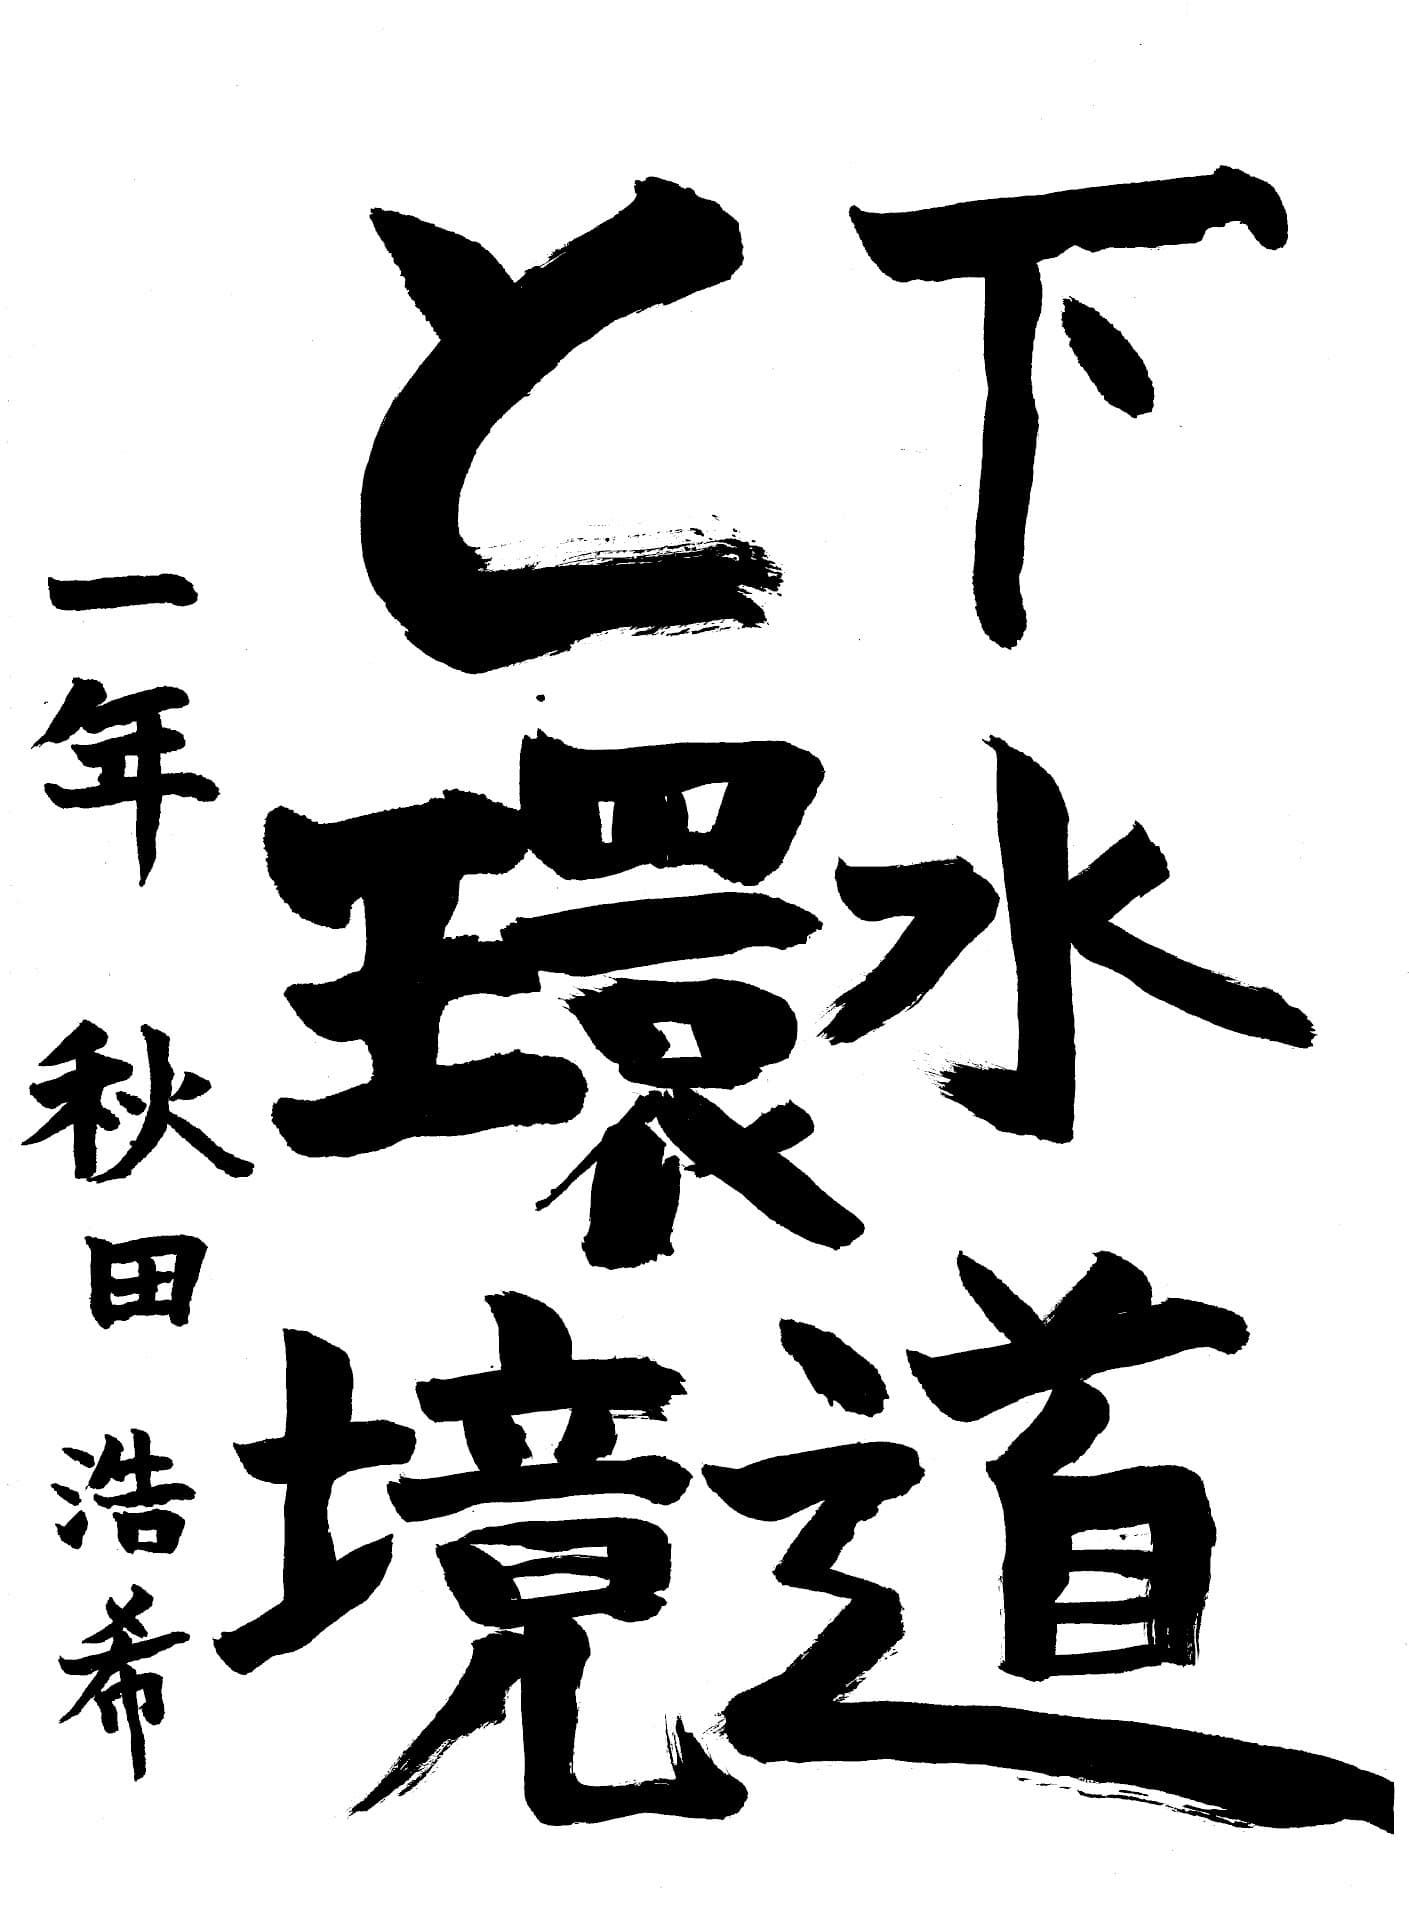 下水道
と環境
一年 秋田浩希